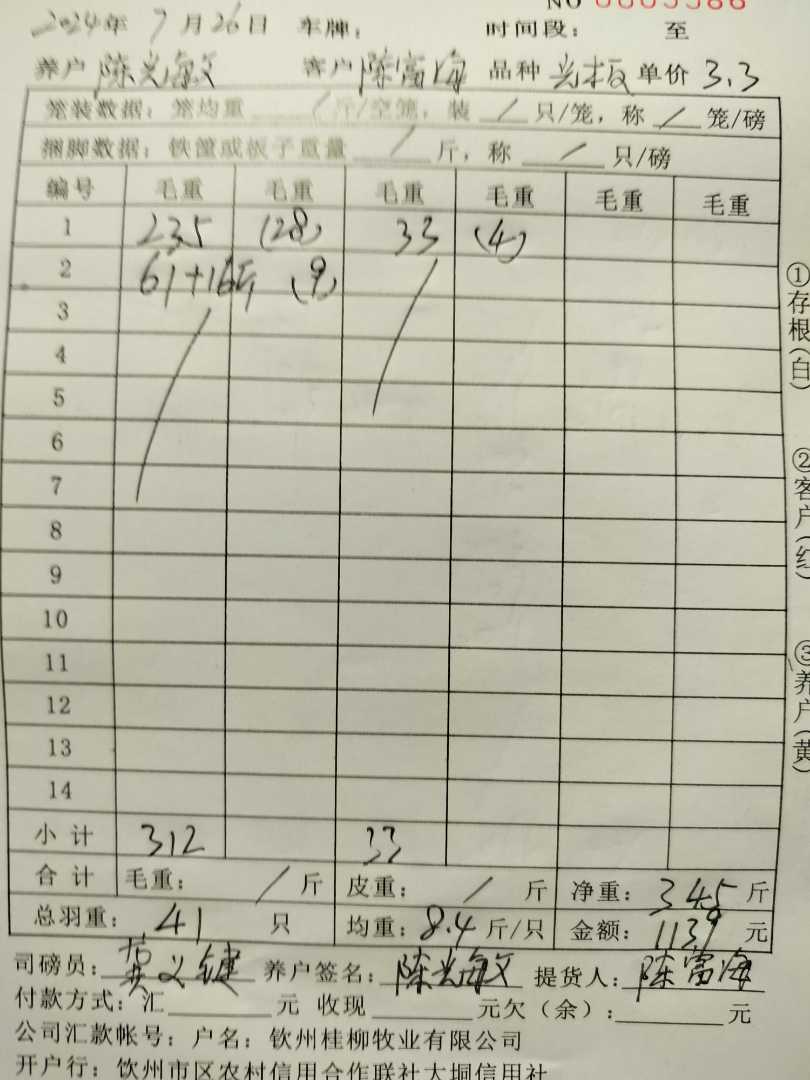 NO 0005586
2024年 7月26日 车牌: 时间段: 至
养户 陈兴海文 客户 陈富海 品种 光板 单价 3.3
笼装数据: 笼均重 / 斤/空笼, 装 / 只/笼, 称 / 笼/磅
捆脚数据: 铁筐或板子重量 / 斤, 称 / 只/磅
编号 毛重 毛重 毛重 毛重 毛重 毛重
1 235 (28) 33 (4)
2 61+16斤 (9)
3
4
5
6
7
8
9
10
11
12
13
14
小计 312 33
合计 毛重: / 斤 皮重: / 斤 净重: 345 斤
总羽重: 41 只 均重: 8.4 斤/只 金额: 1139 元
司磅员: 黄义键 养户签名: 陈兴海文 提货人: 陈富海
付款方式: 汇 元 收现 元欠(余): 元
公司汇款帐号: 户名: 钦州桂柳牧业有限公司
开户行: 钦州市区农村信用合作联社大垌信用社
①存根(白) ②客户(红) ③养户(黄)